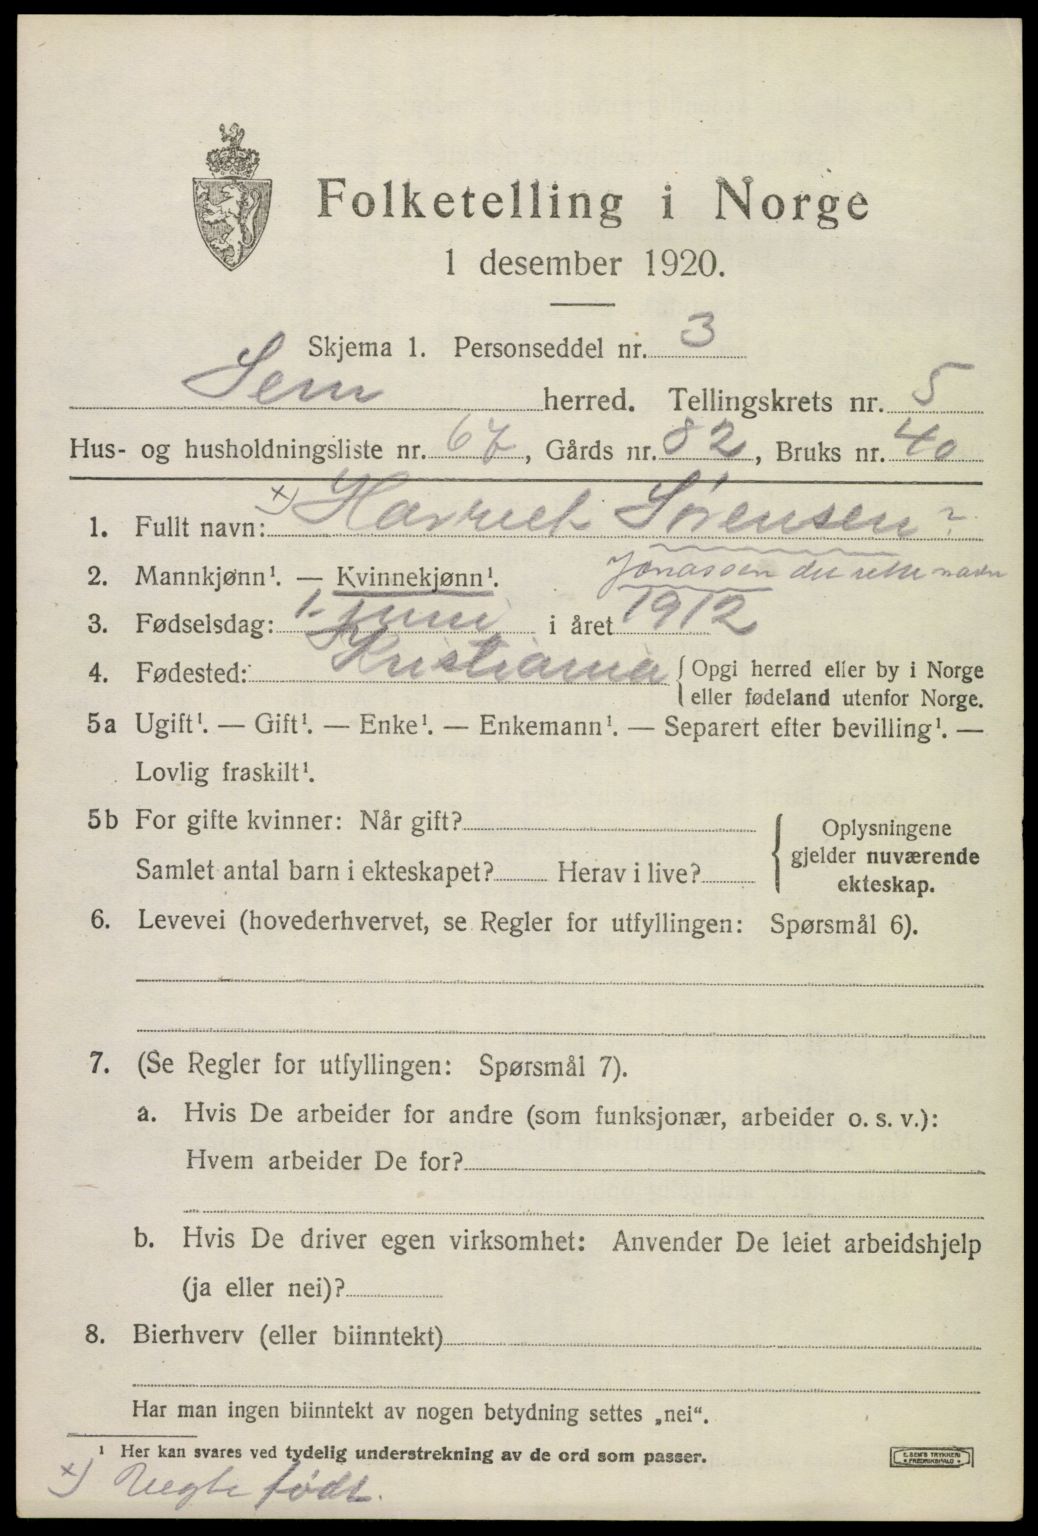 Folketelling i Norge
1 desember 1920.
Skjema 1. Personseddel nr. 3
Sem herred. Tellingskrets nr. 5
Hus- og husholdningsliste nr. 67, Gårds nr. 82, Bruks nr. 40
x)
1. Fullt navn: Harriet Sørensen ?
Jonassen det rette navn
2. Mannkjønn¹. — Kvinnekjønn¹.
3. Fødselsdag: 1. juni i året 1912
4. Fødested: Kristiania { Opgi herred eller by i Norge
eller fødeland utenfor Norge.
5a Ugift¹. — Gift¹. — Enke¹. — Enkemann¹. — Separert efter bevilling¹. —
Lovlig fraskilt¹.
5b For gifte kvinner: Når gift?
Samlet antal barn i ekteskapet? Herav i live?
{ Oplysningene
gjelder nuværende
ekteskap.
6. Levevei (hovederhvervet, se Regler for utfyllingen: Spørsmål 6).
7. (Se Regler for utfyllingen: Spørsmål 7).
a. Hvis De arbeider for andre (som funksjonær, arbeider o. s. v.):
Hvem arbeider De for?
b. Hvis De driver egen virksomhet: Anvender De leiet arbeidshjelp
(ja eller nei)?
8. Bierhverv (eller biinntekt)
Har man ingen biinntekt av nogen betydning settes „nei“.
¹ Her kan svares ved tydelig understrekning av de ord som passer.
E. SEM'S TRYKKERI
FREDRIKSHALD
x) Uegte født.